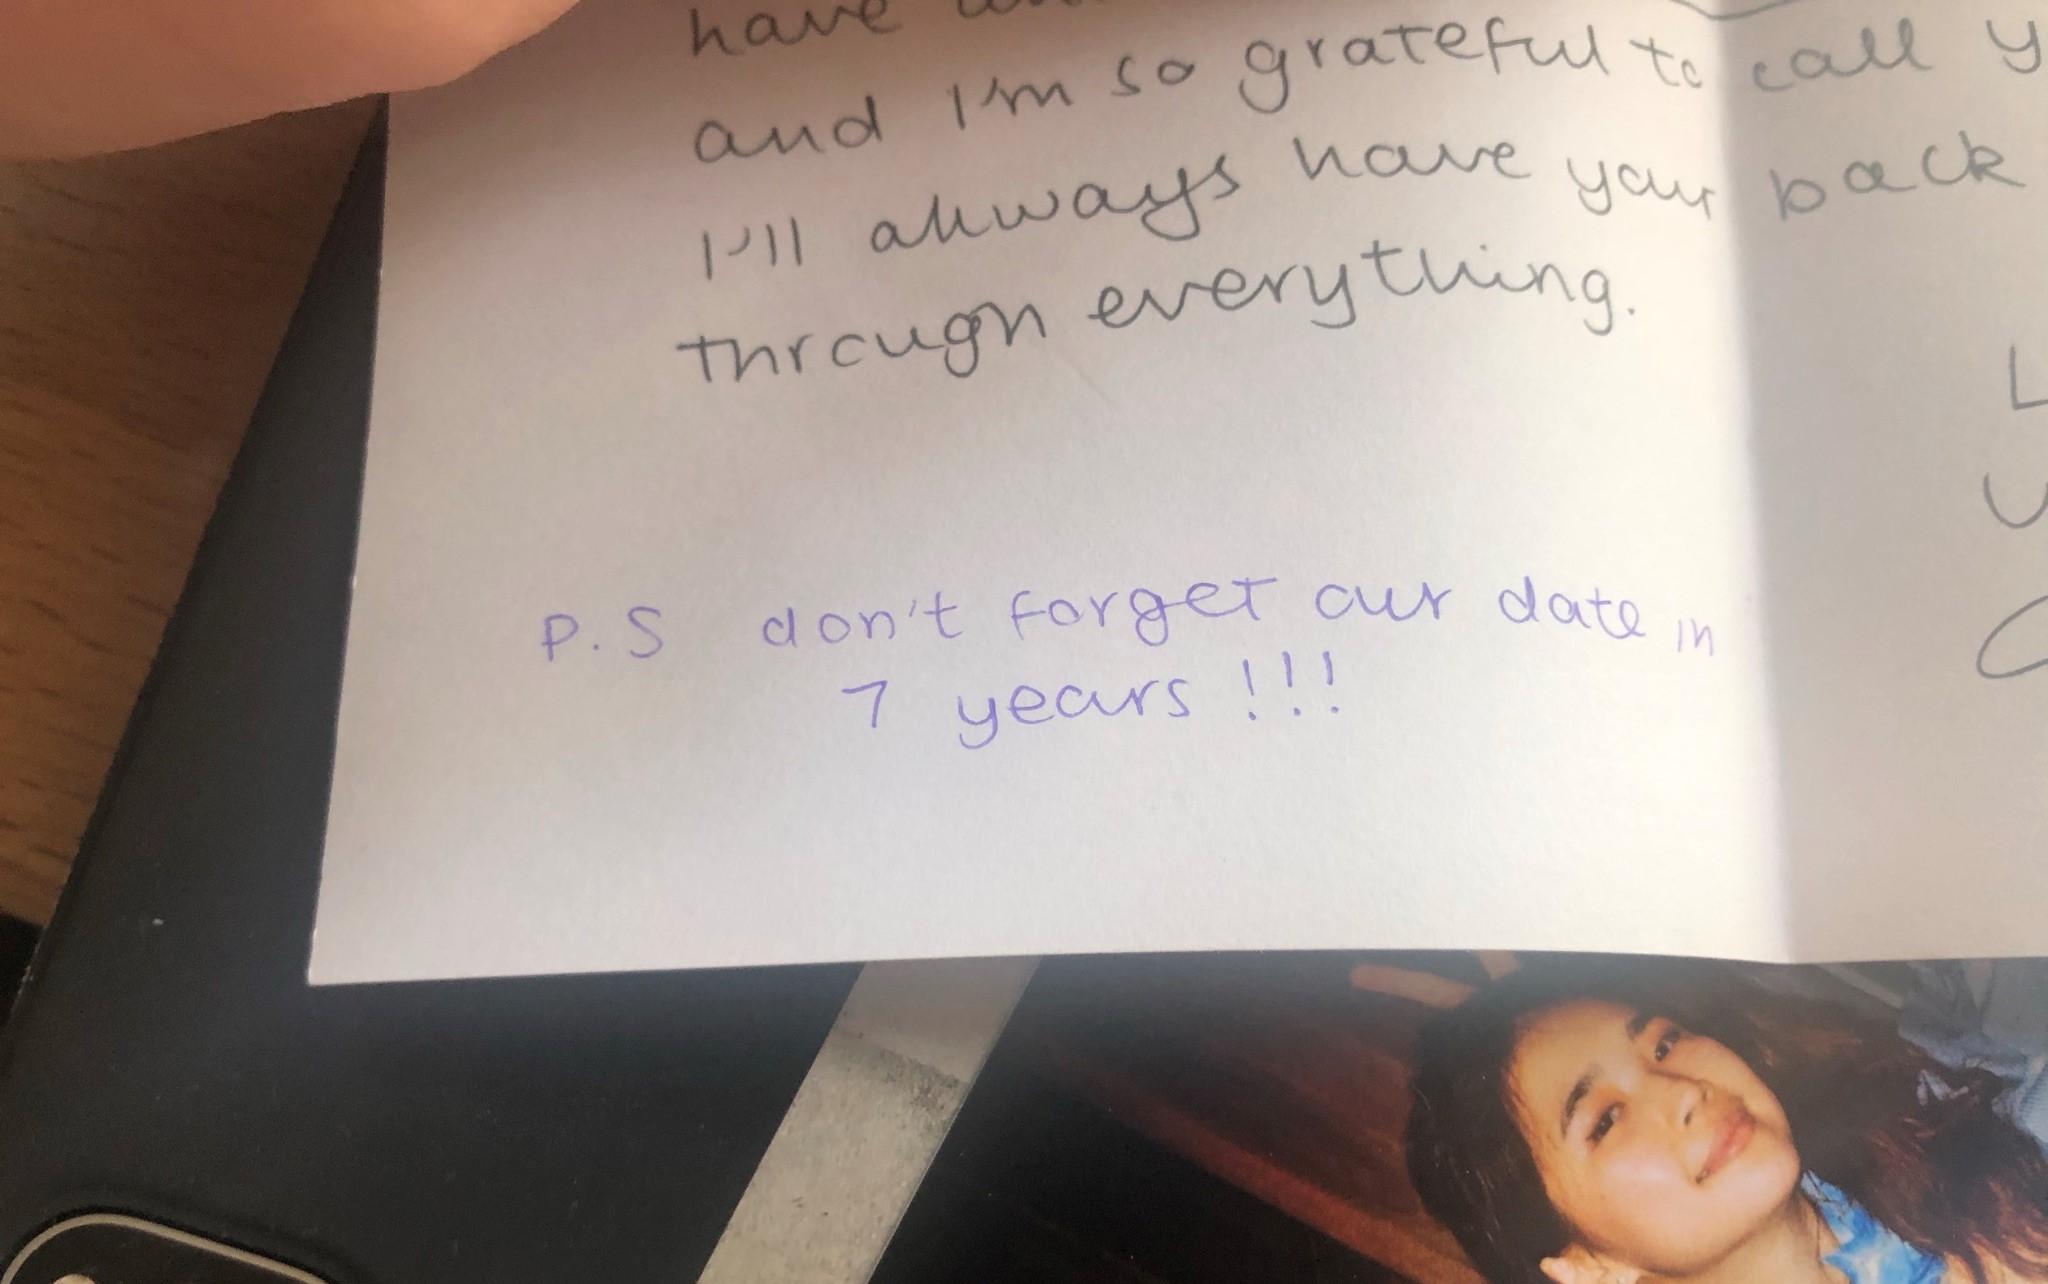 have
and I'm so grateful to call y
I'll always have your back
through everything.
L
P.S don't forget our date in
7 years!!!